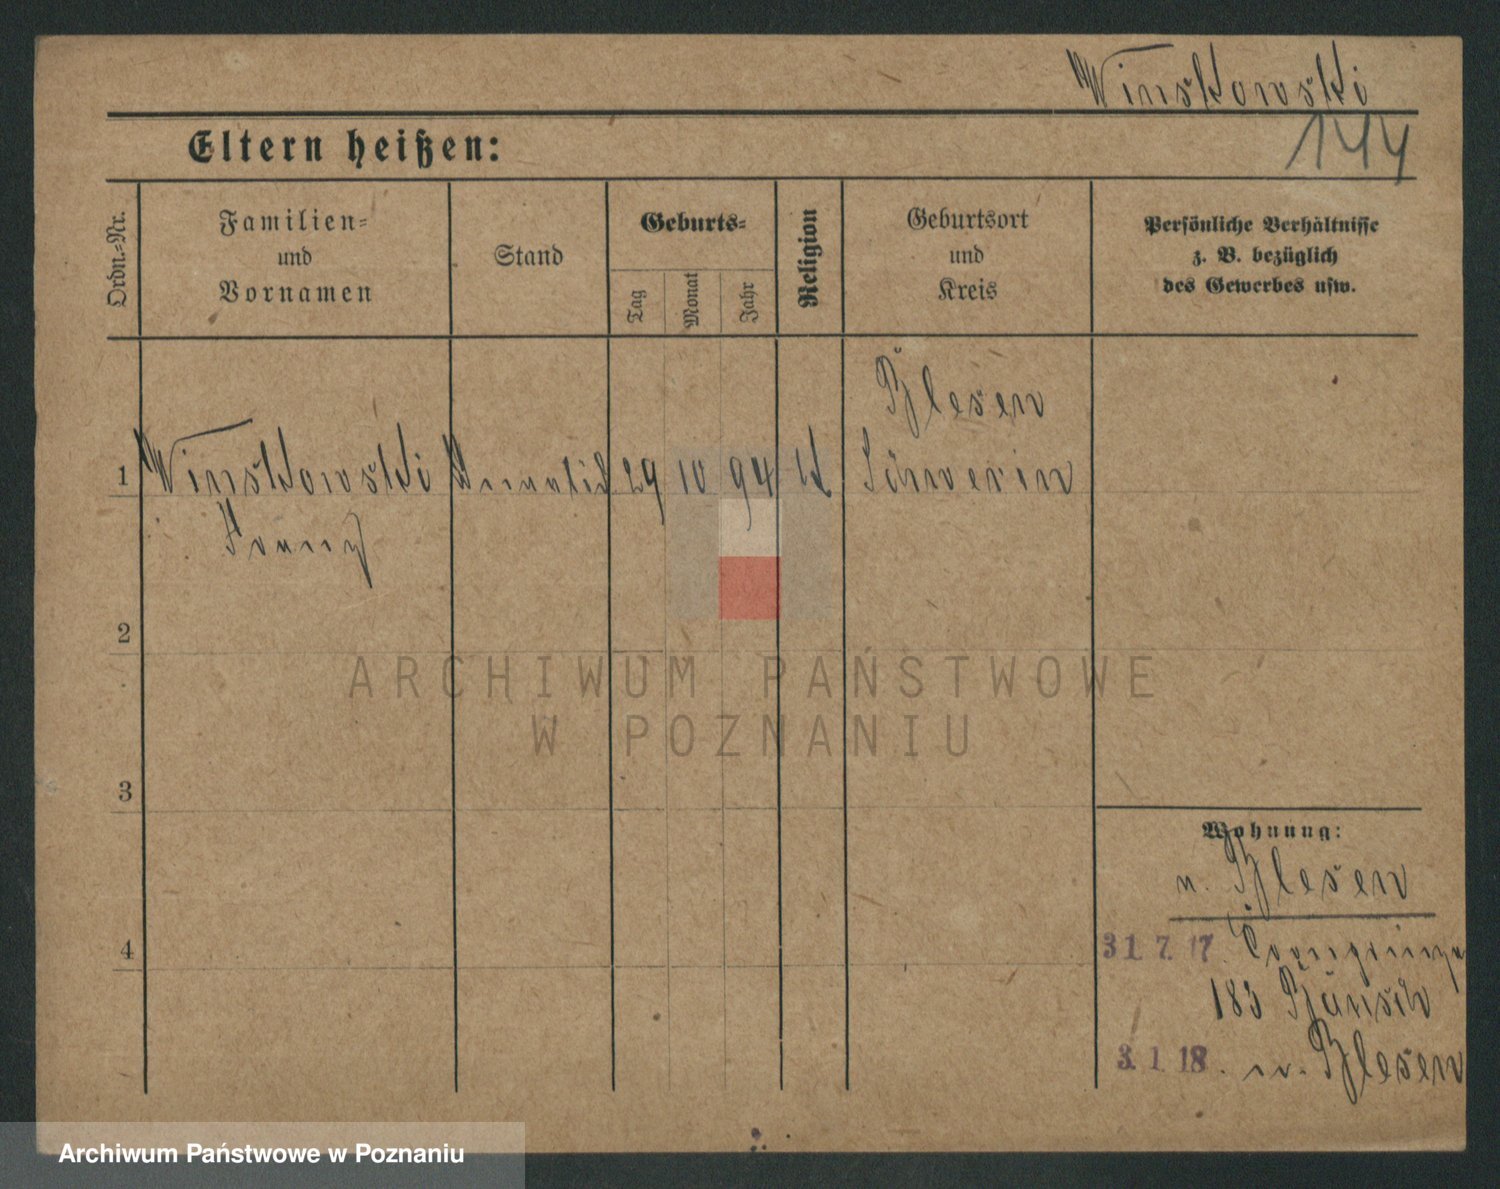 Winskowski
144
Eltern heißen:
Ordn.=Nr.
Familien=
und
Vornamen
Stand
Geburts=
Tag
Monat
Jahr
Religion
Geburtsort
und
Kreis
Persönliche Verhältnisse
z. B. bezüglich
des Gewerbes usw.
Blesen
1 Winskowski 29 10 94 K Schwerin
Franz
2
ARCHIWUM PAŃSTWOWE
W POZNANIU
3
Wohnung:
n. Blesen
4
31. 7. 17.
183
3. 1. 18. n. Blesen
Archiwum Państwowe w Poznaniu